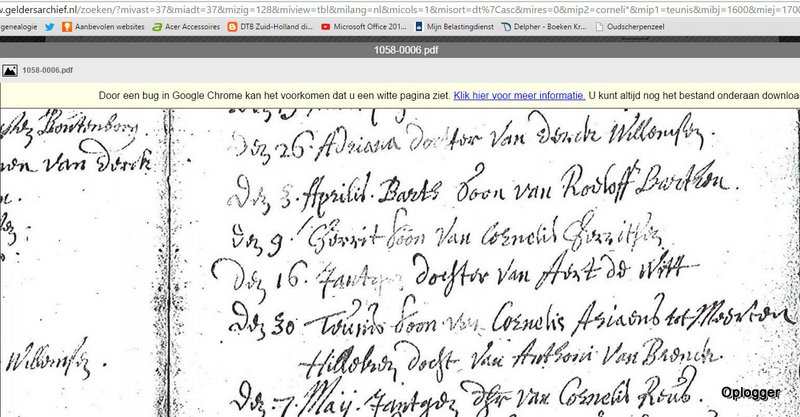 w.geldersarchief.nl/zoeken/?mivast=37&miadt=37&mizig=128&miview=tbl&milang=nl&micols=1&misort=dt%7Casc&mires=0&mip2=corneli*&mip1=teunis&mibj=1600&miej=1700
genealogie Aanbevolen websites Acer Accessoires DTB Zuid-Holland di... Microsoft Office 201... Mijn Belastingdienst Delpher - Boeken Kr... Oudscherpenzeel
1058-0006.pdf
1058-0006.pdf
Door een bug in Google Chrome kan het voorkomen dat u een witte pagina ziet. Klik hier voor meer informatie. U kunt altijd nog het bestand onderaan downloa
Boutenborg
van Derck
Willemsen.
Den 26. Adriana dochter van Derck Willemsen.
Den 3. Aprilis. Bart soon van Roeloff Bartsen.
Den 9. Gerrit soon van Cornelis Gerritsen
Den 16. Jantgen dochter van Aert de Witt
Den 30 Teunis soon van Cornelis Ariaens tot Meerten
Hilleken docht van Anthoni van
Den. 7. Maij. Jantgen dhr van Cornelis
Oplogger